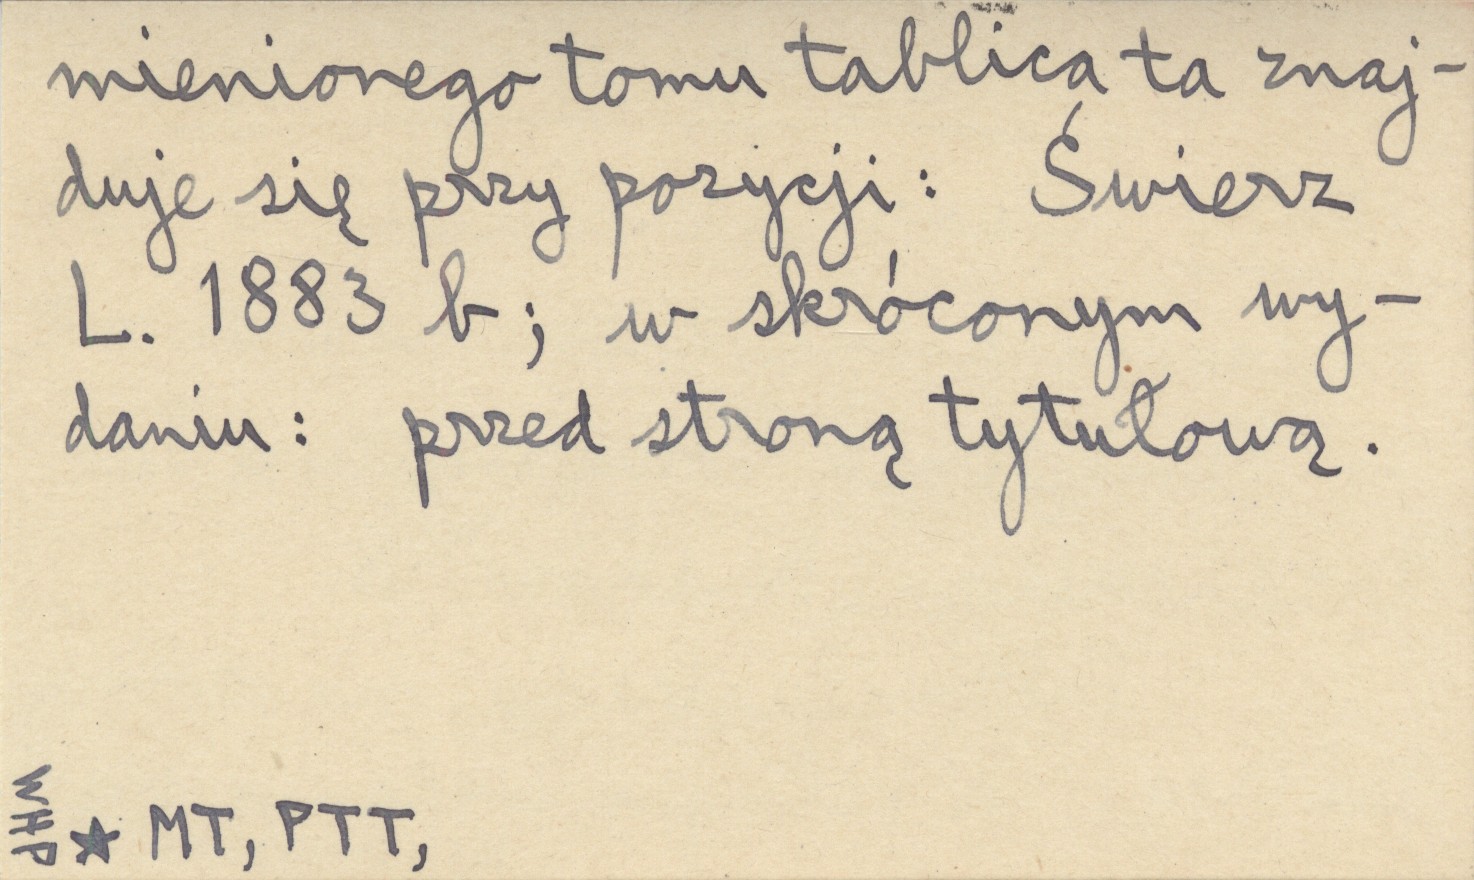 mienionego tomu tablica ta znaj-
duje się przy pozycji: Świerz
L. 1883 b; w skróconym wy-
daniu: przed stroną tytułową.
WHP
★ MT, PTT,